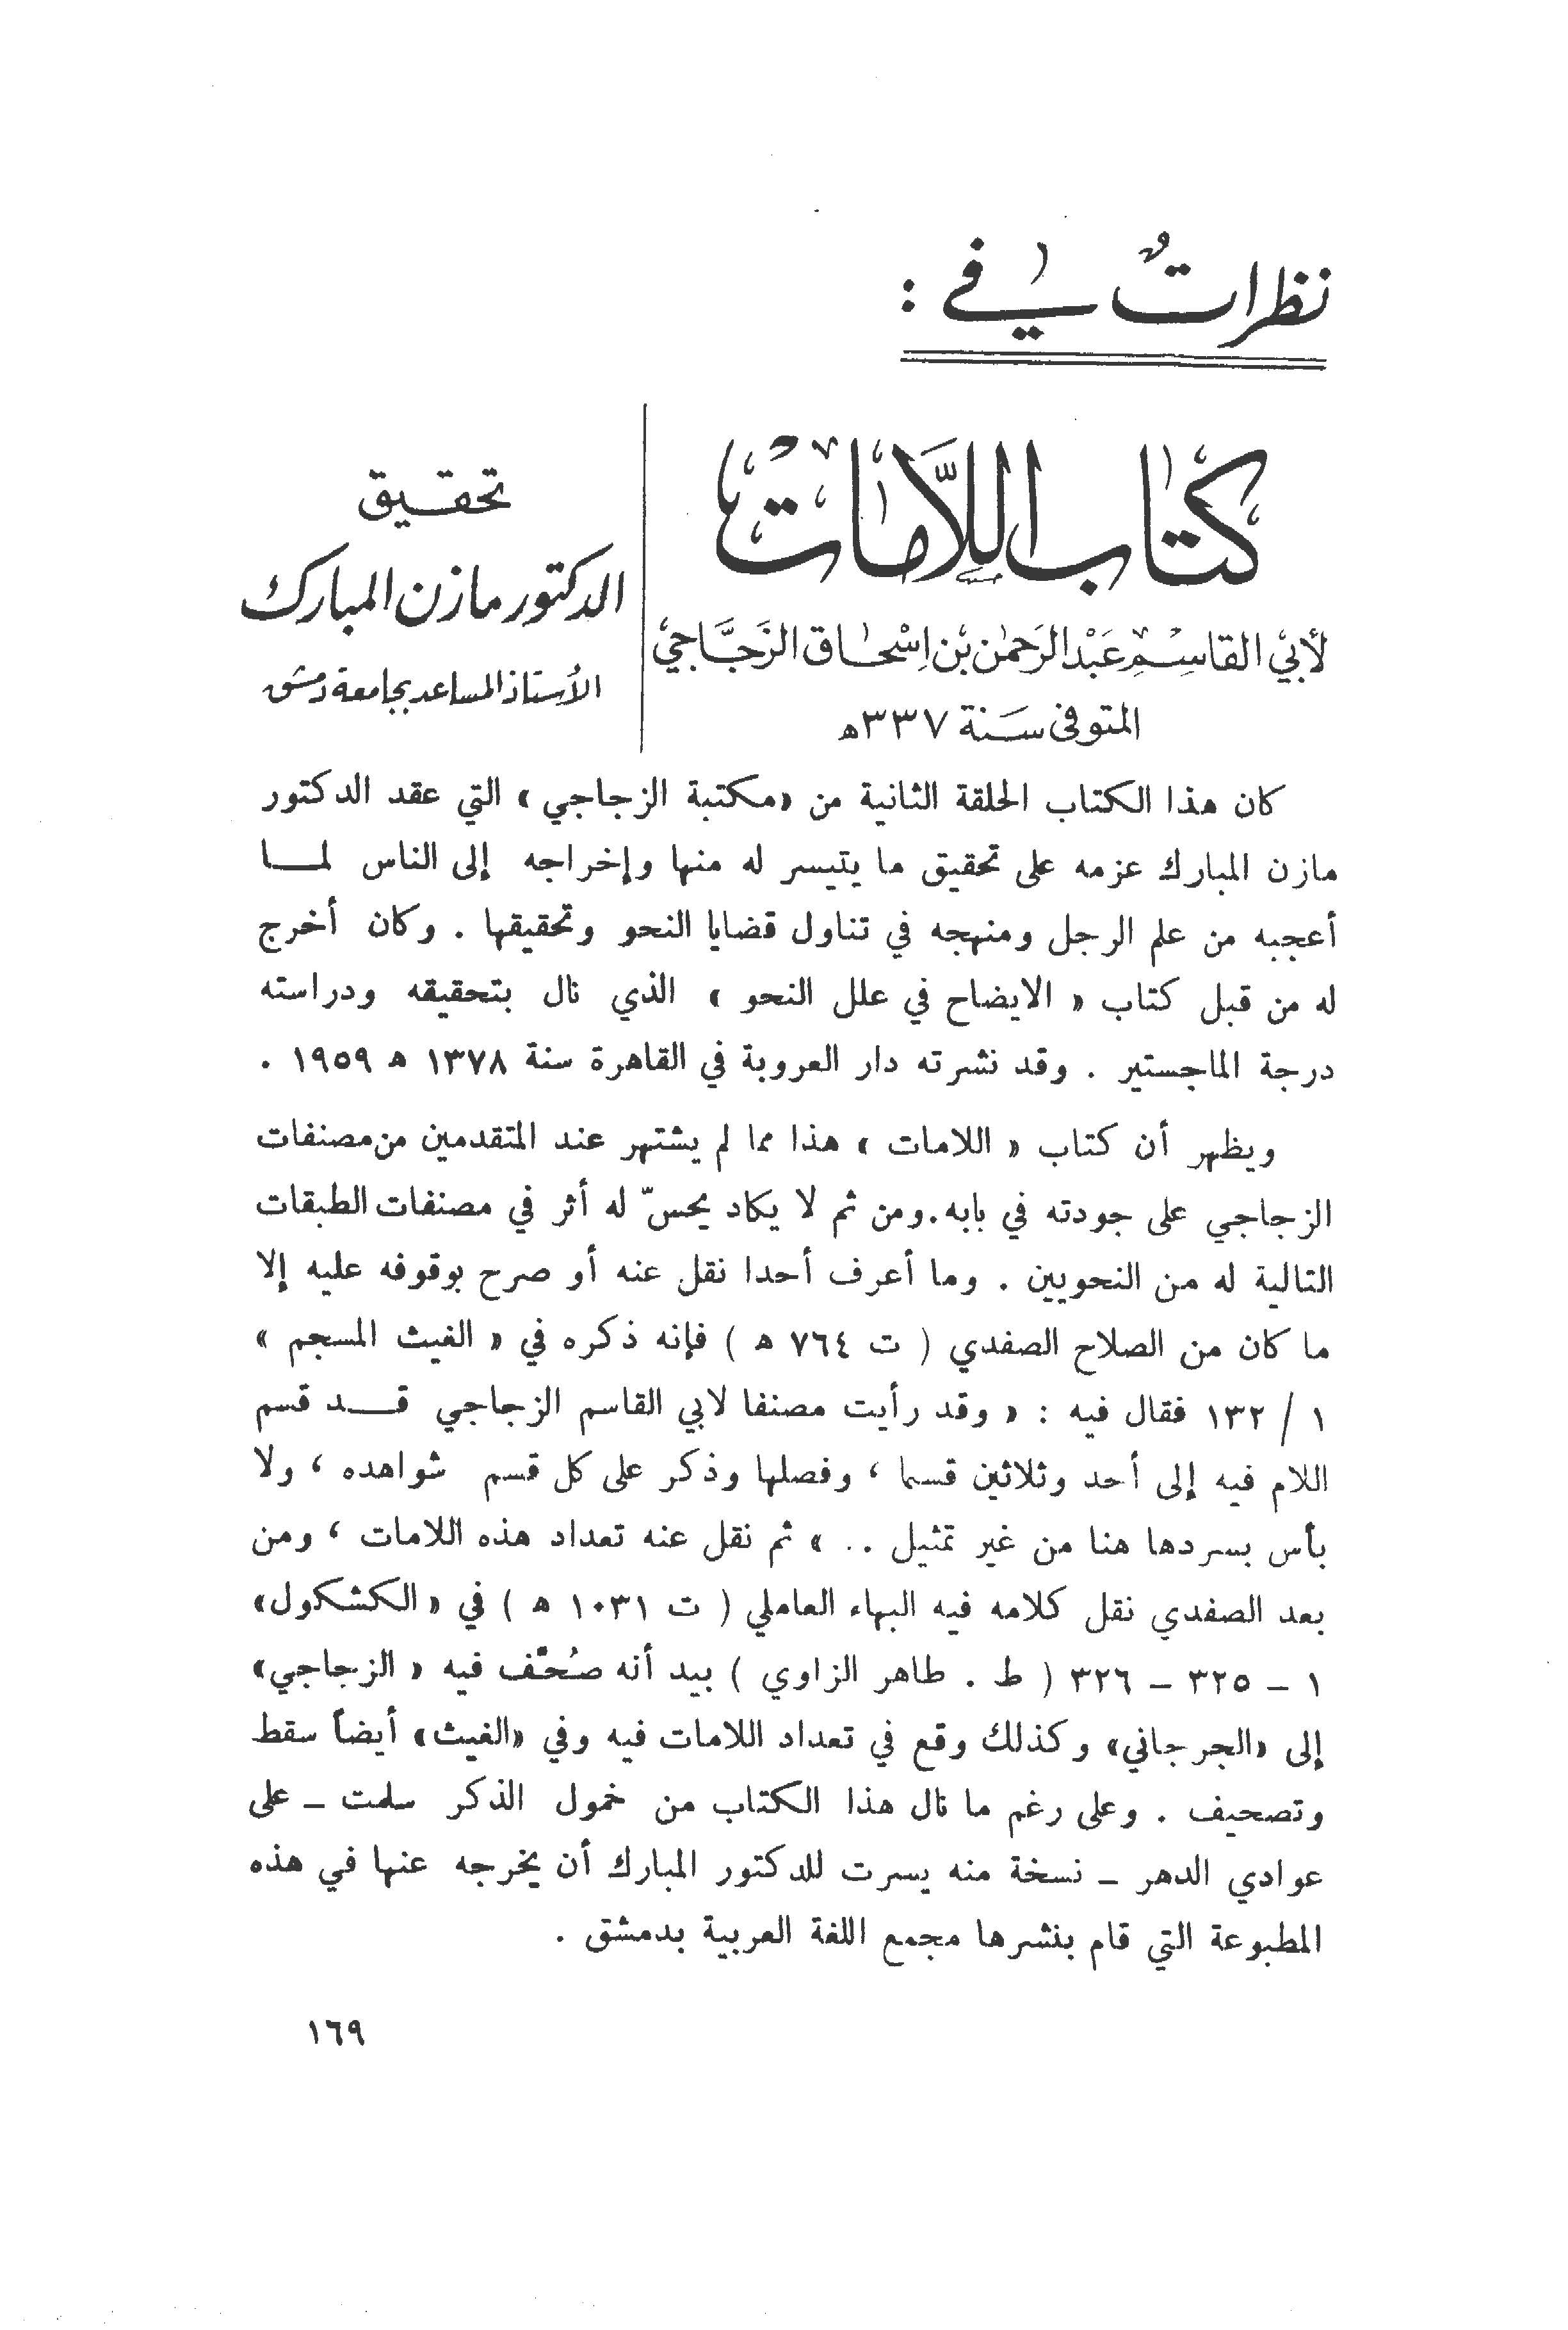 نظراتٌ في :
كتاب اللَّامات
لأبي القاسِمِ عَبْد الرَحمٰن بْن اِسْحٰاق الزَجَّاجيْ
المتوفى سَنة ٣٣٧ هـ
تحقيق
الدكتور مازن المبارك
الأستاذ المساعد بجامعة دمشق
كان هذا الكتاب الحلقة الثانية من «مكتبة الزجاجي» التي عقد الدكتور
مازن المبارك عزمه على تحقيق ما يتيسر له منها وإخراجه إلى الناس لمــا
أعجبه من علم الرجل ومنهجه في تناول قضايا النحو وتحقيقها . وكان أخرج
له من قبل كتاب « الايضاح في علل النحو » الذي نال بتحقيقه ودراسته
درجة الماجستير . وقد نشرته دار العروبة في القاهرة سنة ١٣٧٨ ه ١٩٥٩ .
ويظهر أن كتاب « اللامات » هذا مما لم يشتهر عند المتقدمين من مصنفات
الزجاجي على جودته في بابه. ومن ثم لا يكاد يحسّ له أثر في مصنفات الطبقات
التالية له من النحويين . وما أعرف أحدا نقل عنه أو صرح بوقوفه عليه إلا
ما كان من الصلاح الصفدي ( ت ٧٦٤ ه ) فإنه ذكره في « الغيث المسجم »
١ / ١٣٢ فقال فيه : « وقد رأيت مصنفا لابي القاسم الزجاجي قــد قسم
اللام فيه إلى أحد وثلاثين قسما ، وفصلها وذكر على كل قسم شواهده ، ولا
بأس بسردها هنا من غير تمثيل .. » ثم نقل عنه تعداد هذه اللامات ، ومن
بعد الصفدي نقل كلامه فيه البهاء العاملي ( ت ١٠٣١ ه ) في « الكشكول»
١ – ٣٢٥ – ٣٢٦ ( ط . طاهر الزاوي ) بيد أنه صُحّف فيه « الزجاجي»
إلى «الجرجاني» وكذلك وقع في تعداد اللامات فيه وفي «الغيث» أيضاً سقط
وتصحيف . وعلى رغم ما نال هذا الكتاب من خمول الذكر سلمت – على
عوادي الدهر – نسخة منه يسرت للدكتور المبارك أن يخرجه عنها في هذه
المطبوعة التي قام بنشرها مجمع اللغة العربية بدمشق .
١٦٩